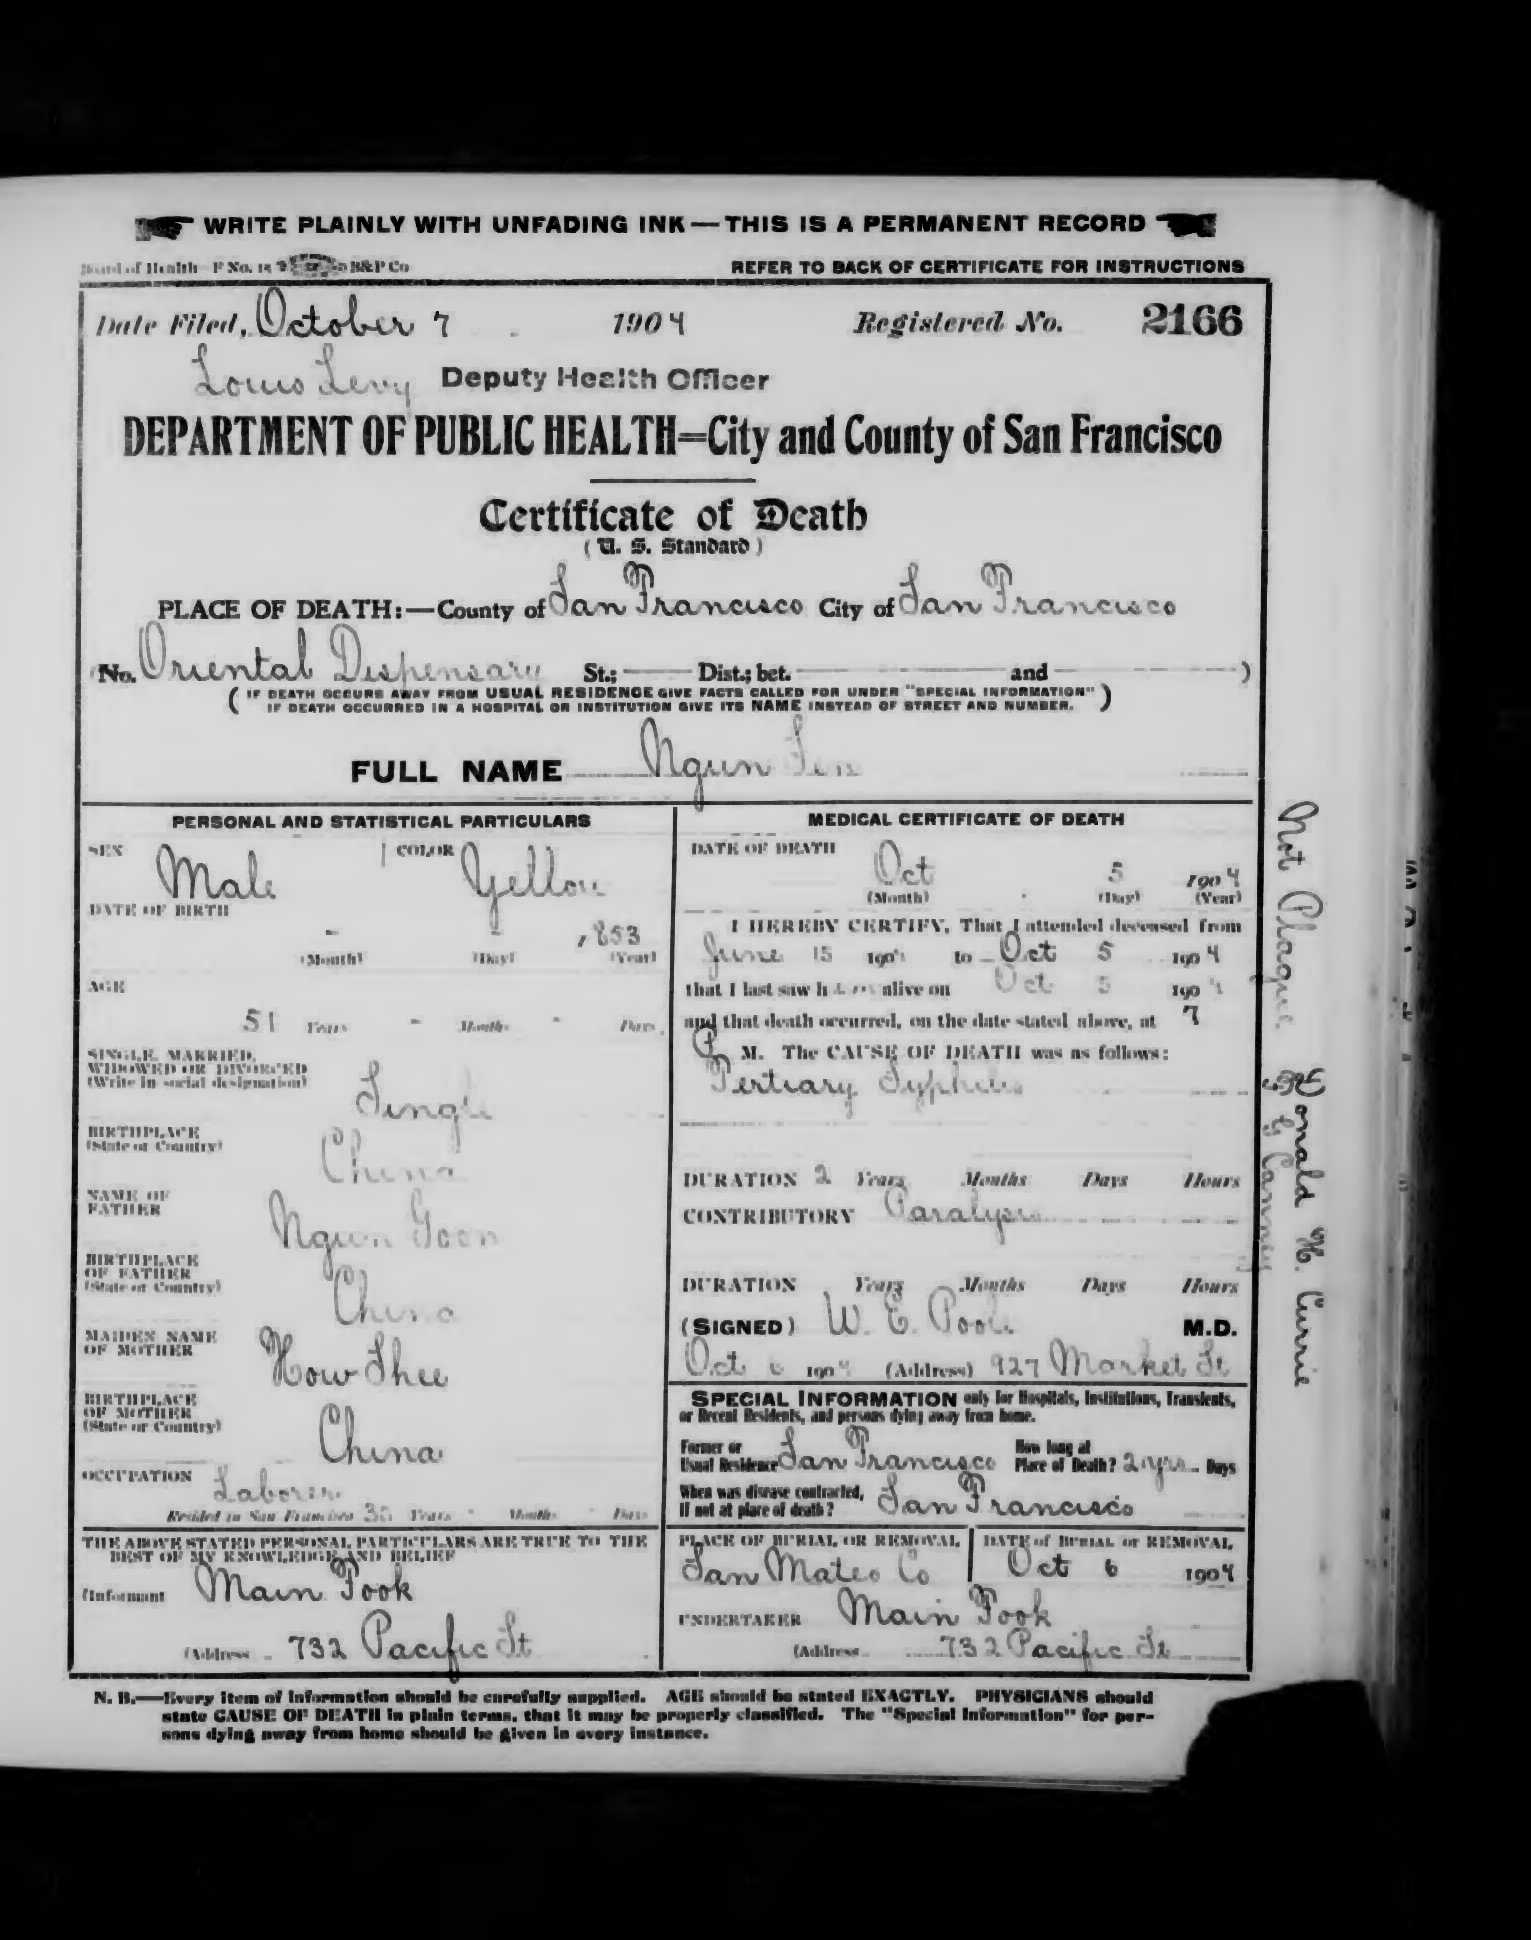 WRITE PLAINLY WITH UNFADING INK—THIS IS A PERMANENT RECORD
Board of Health—F No. 15 B&P Co
REFER TO BACK OF CERTIFICATE FOR INSTRUCTIONS
Date Filed, October 7 1904 Registered No. 2166
Louis Levy Deputy Health Officer
DEPARTMENT OF PUBLIC HEALTH=City and County of San Francisco
Certificate of Death
(U. S. Standard)
PLACE OF DEATH:—County of San Francisco City of San Francisco
(No. Oriental Dispensary St.; Dist.; bet. and )
(IF DEATH OCCURS AWAY FROM USUAL RESIDENCE GIVE FACTS CALLED FOR UNDER "SPECIAL INFORMATION"
IF DEATH OCCURRED IN A HOSPITAL OR INSTITUTION GIVE ITS NAME INSTEAD OF STREET AND NUMBER.)
FULL NAME Ngun Sen
PERSONAL AND STATISTICAL PARTICULARS
SEX Male COLOR Yellow
DATE OF BIRTH
- - 1853
(Month) (Day) (Year)
AGE
51 Years - Months - Days
SINGLE, MARRIED,
WIDOWED OR DIVORCED
(Write in social designation) Single
BIRTHPLACE
(State or Country) China
NAME OF
FATHER Ngun Goon
BIRTHPLACE
OF FATHER
(State or Country) China
MAIDEN NAME
OF MOTHER How Shee
BIRTHPLACE
OF MOTHER
(State or Country) China
OCCUPATION Laborer
Resided in San Francisco 30 Years - Months - Days
THE ABOVE STATED PERSONAL PARTICULARS ARE TRUE TO THE
BEST OF MY KNOWLEDGE AND BELIEF
(Informant Main Fook
(Address 732 Pacific St
MEDICAL CERTIFICATE OF DEATH
DATE OF DEATH
Oct 5 1904
(Month) (Day) (Year)
I HEREBY CERTIFY, That I attended deceased from
June 15 1904 to Oct 5 1904
that I last saw him alive on Oct 5 1904
and that death occurred, on the date stated above, at 7
P M. The CAUSE OF DEATH was as follows:
Tertiary Syphilis
DURATION 2 Years Months Days Hours
CONTRIBUTORY Paralysis
DURATION Years Months Days Hours
(SIGNED) W. E. Poole M.D.
Oct 6 1904 (Address) 927 Market St
SPECIAL INFORMATION only for Hospitals, Institutions, Transients,
or Recent Residents, and persons dying away from home.
Former or
Usual Residence San Francisco How long at
Place of Death? 2 yrs Days
When was disease contracted,
If not at place of death? San Francisco
PLACE OF BURIAL OR REMOVAL
San Mateo Co
DATE of BURIAL or REMOVAL
Oct 6 1904
UNDERTAKER Main Fook
(Address 732 Pacific St
N. B.—Every item of information should be carefully supplied. AGE should be stated EXACTLY. PHYSICIANS should
state CAUSE OF DEATH in plain terms, that it may be properly classified. The "Special Information" for per-
sons dying away from home should be given in every instance.
Not Plague. Donald H. Currie